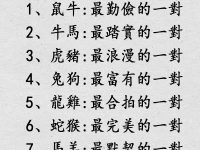 1、鼠牛:最勤儉的一對
2、牛馬:最踏實的一對
3、虎豬:最浪漫的一對
4、兔狗:最富有的一對
5、龍雞:最合拍的一對
6、蛇猴:最完美的一對
7、馬羊:最默契的一對